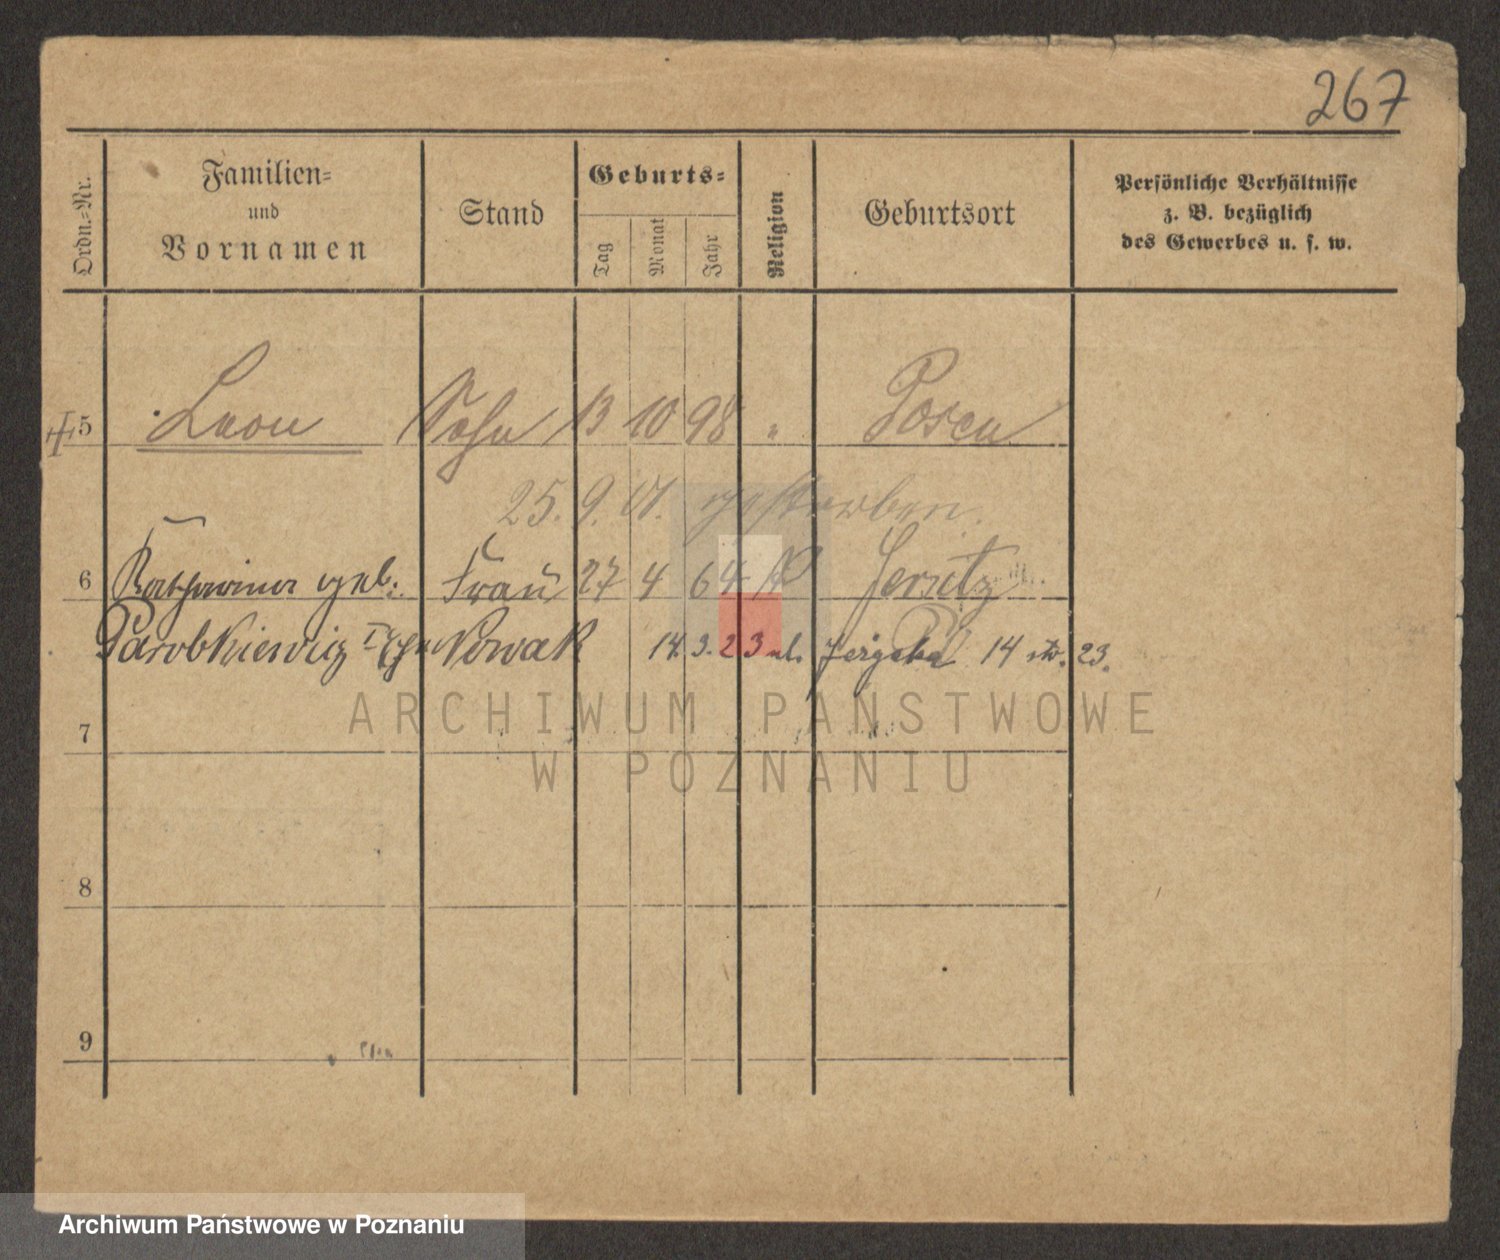 267
Ordn.-Nr.
Familien-
und
Vornamen
Stand
Geburts-
Tag
Monat
Jahr
Religion
Geburtsort
Persönliche Verhältnisse
z. B. bezüglich
des Gewerbes u. s. w.
5 Leon Sohn 13 10 98 " Posen
25. 9. 01. gestorben.
6 Katharina geb. Frau 27 4 64 K Jersitz
Parobkiewicz Nowak 14. 3. 23 14 23.
7
8
9
ARCHIWUM PAŃSTWOWE
W POZNANIU
Archiwum Państwowe w Poznaniu